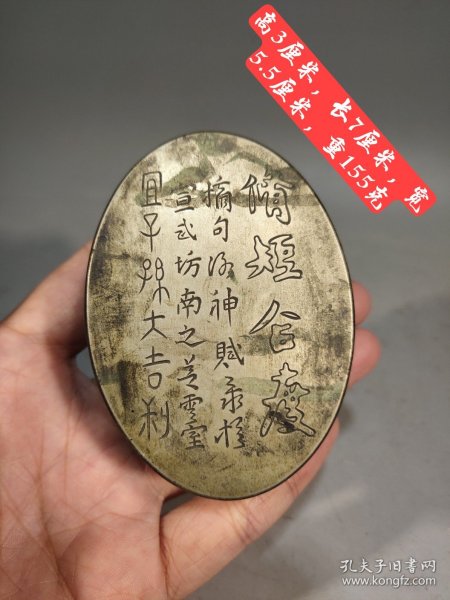 高3厘米，长7厘米，宽
5.5厘米，重155克
脩短合度
摘句洛神賦於
宣武坊南之雲室
宜子孫大吉利
孔夫子旧书网
www.kongfz.com